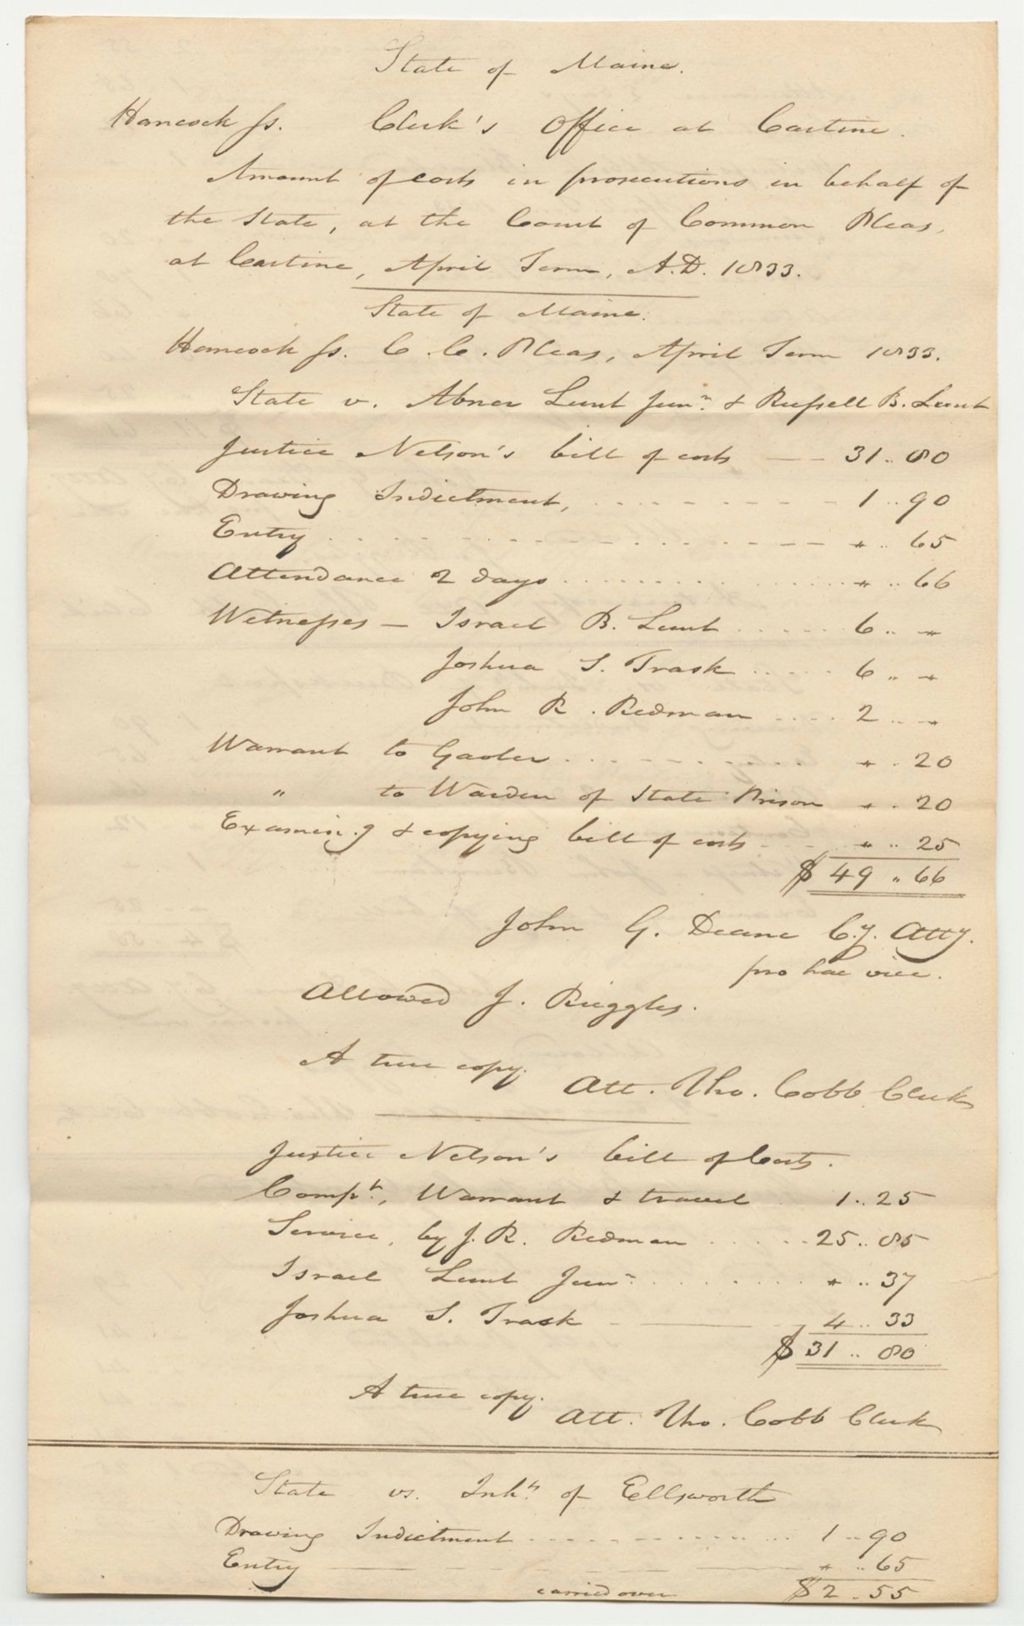 State of Maine.
Hancock ss. Clerk's Office at Castine.
Amount of costs in prosecutions in behalf of
the State, at the Court of Common Pleas,
at Castine, April Term, A.D. 1833.
State of Maine.
Hancock ss. C. C. Pleas, April Term 1833.
State v. Abner Lunt Junr. & Russell B. Lunt
Justice Nelson's bill of costs — — 31..80
Drawing Indictment, . . . . . . 1..90
Entry . . . . . . . . . . ".. 65
Attendance 2 days . . . . . . . "..66
Witnesses — Israel B. Lunt . . . . . 6.. "
Joshua S. Trask . . . . . 6.. "
John R. Redman . . . . 2.. "
Warrant to Gaoler . . . . . . . ". 20
" to Warden of State Prison ". 20
Examin.g & copying bill of costs — ".. 25
$49..66
John G. Deane Cy. Atty.
pro hac vice.
Allowed J. Ruggles.
A true copy.
Att. Tho. Cobb Clerk
Justice Nelson's bill of Costs.
Compt., Warrant & travel . 1..25
Service, by J. R. Redman . . . . . 25..85
Israel Lunt Junr. . . . . . . "..37
Joshua S. Trask — 4..33
$31..80
A true copy.
Att. Tho. Cobb Clerk
State vs. Inhts of Ellsworth
Drawing Indictment . . . . . . . 1..90
Entry — "..65
carried over $2..55